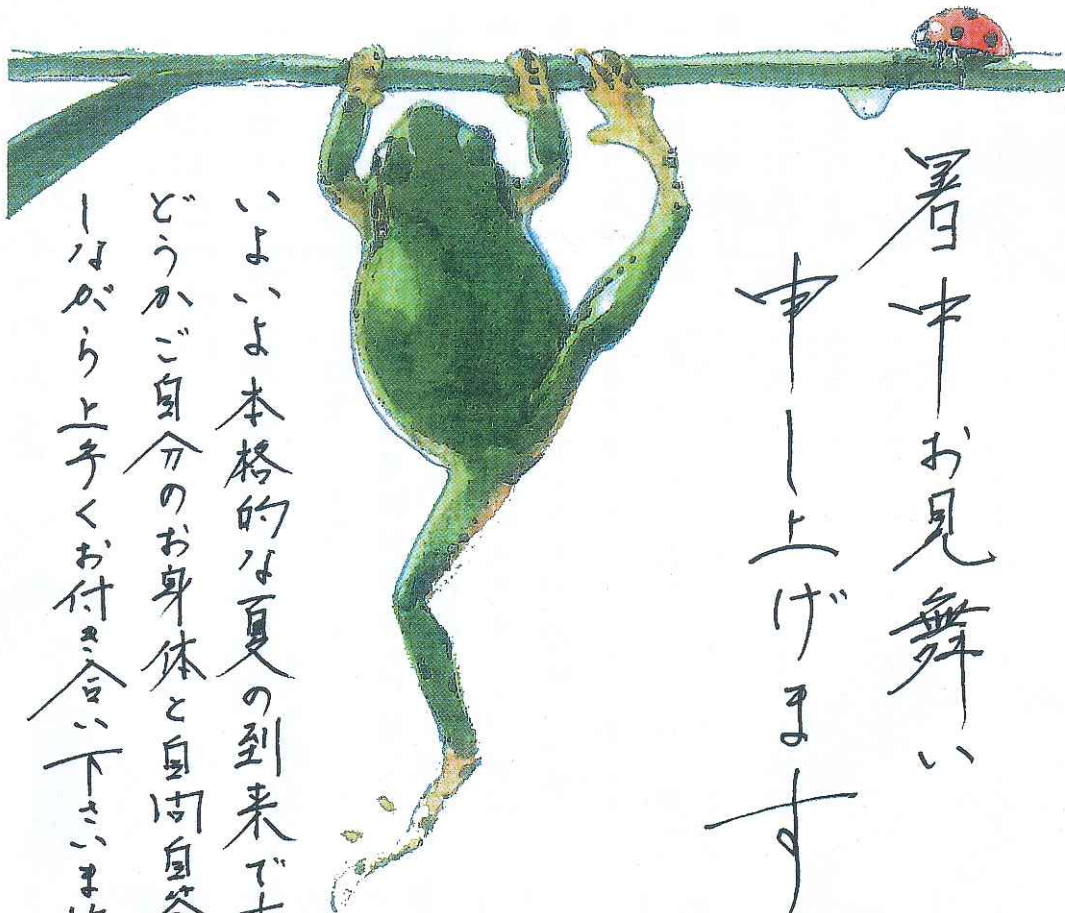 暑中お見舞い
申し上げます
いよいよ本格的な夏の到来です
どうかご自分のお身体と自問自答
しながら上手くお付き合い下さいま